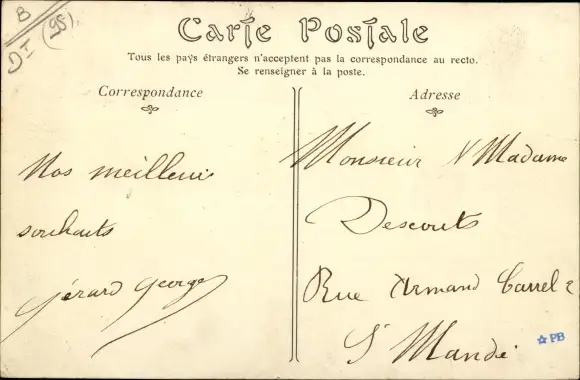 B
DI (95)
Carte Postale
Tous les pays étrangers n'acceptent pas la correspondance au recto.
Se renseigner à la poste.
Correspondance
Nos meilleurs
souhaits
Gérard George
Adresse
Monsieur & Madame
Descouts
Rue Armand Carrel 2
St Mandé
☆PB